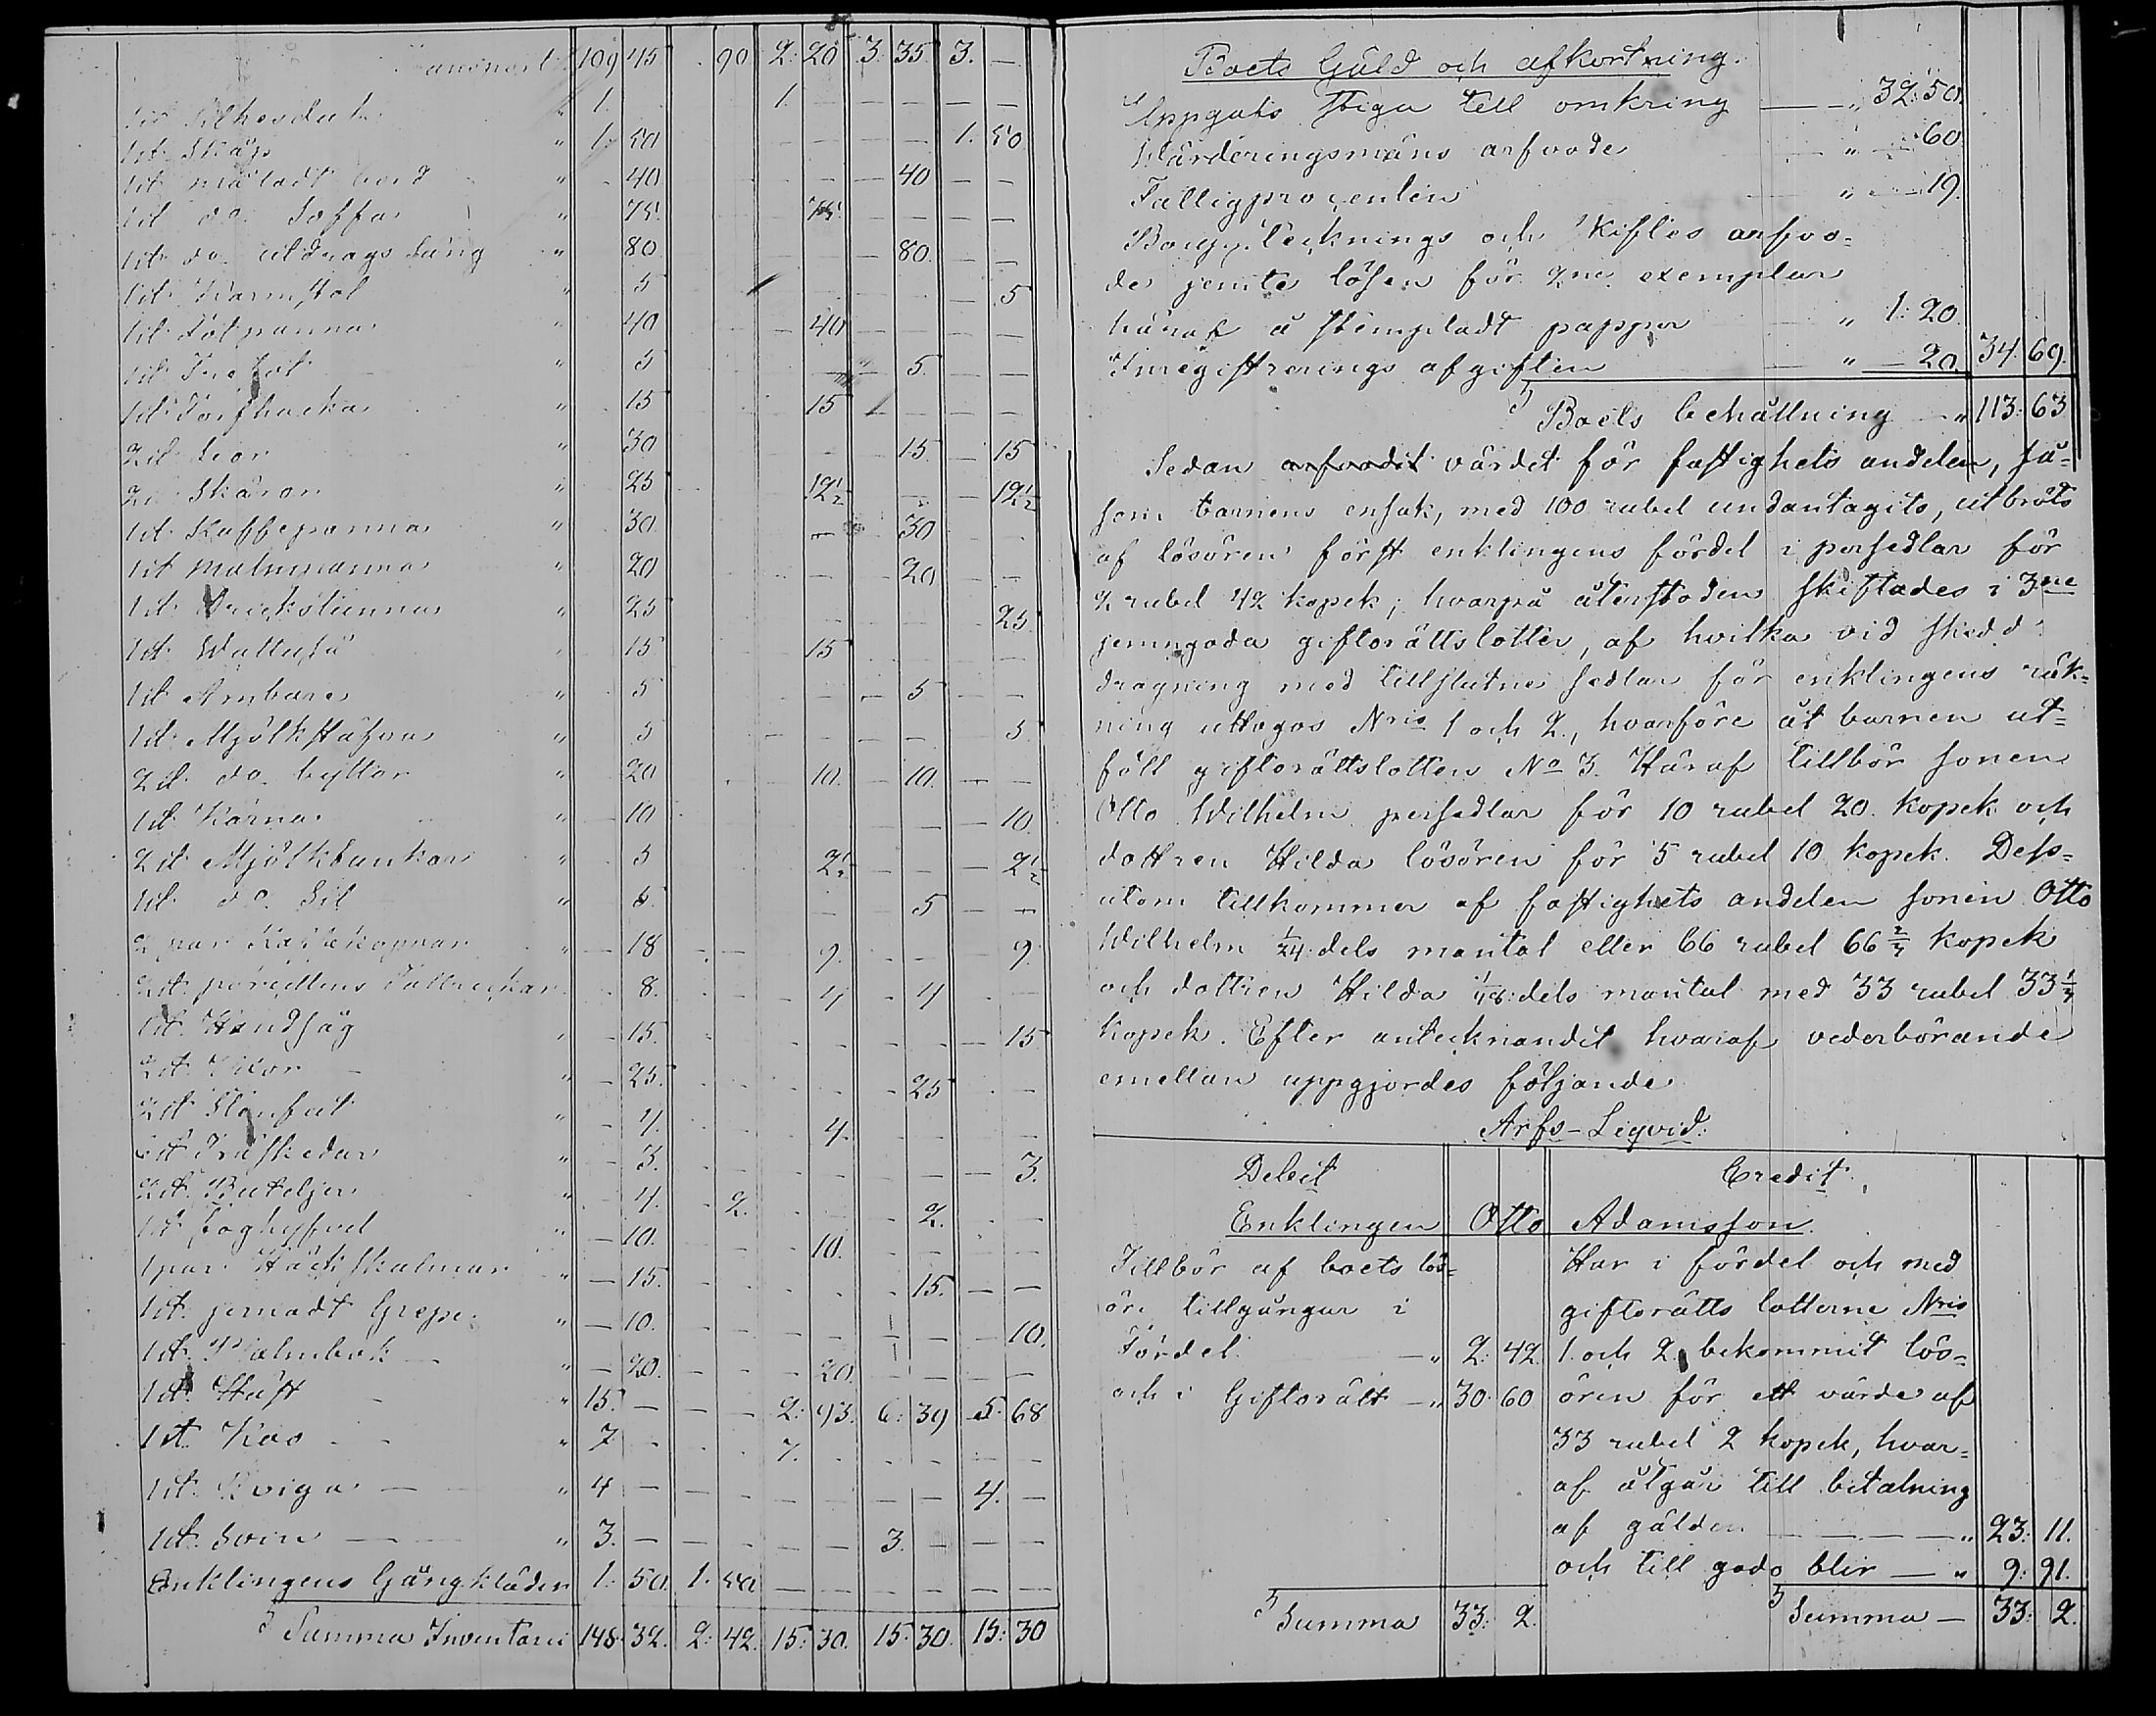 Transport 109 45 . 90 2: 20 3: 35. 3. —
1 st. " 1. 1. — — — — —
1 st. Skåp " 1. 50 — — — 1. 50
1 st. måladt bord " 40 — — 40 — —
1 st. do. Soffa " 75 75. — — — —
1 st. do. utdrags Säng " 80 — — 80. — —
1 st. Karmstol " 5 5
1 st. Fotpanna " 40 40 — — — —
1 st. " 5 — 5. — —
1 st. Torfhacka " 15 15 — — — —
2 st. Liar " 30 15 — 15
2 st. Skäror " 25 12½ — 12½
1 st. Kaffepanna " 30 — 30
1 st. Malmpanna " 20 — 20 — —
1 st. Drickstunna " 25 25.
1 st. Wattuså 15 15
1 st. Ämbare " 5 — 5 — —
1 st. Mjölkstäfva " 5 5
2 st. do. byttor " 20 10. — 10. — —
1 st. Kärna " 10 — 10.
2 st. Mjölkbunkar " 5 2½ — — — 2½
1 st. do. Sil " 5. — 5 — —
2 par Kaffekoppar " — 18 9. 9.
2 st. porcellens Tallrickar . 8. 4 . 4
1 st. Handsåg 15. — 15
2 st. " — 25. 25
2 st. Stenfat " — 4. 4.
st. Träskedar " — 3. — 3.
2 st. Buteljer " 4. 2. 2.
1 st. " — 10. 10.
1 par Häck skalmar " — 15. 15. — —
1 st. jernadt Grepe " — 10. 10.
1 st. Psalmbok — " — 20. 20. — — —
1 st. Häst " 15. — — — 2: 93. 6: 39 5: 68
1 st. Ko " 7. 7.
1 st. Qviga — " 4 — — 4. —
1 st. Svin — " 3. — — 3. — — —
Enklingens Gångkläder 1: 50. 1. 50 — — — — — —
Summa Inventarii 148. 32. 2: 42. 15: 30. 15: 30. 15: 30
Boets Gäld och afkortning.
Uppgats stiga till omkring — " 32: 50.
Wärderingsmäns arfvode " — 60
Fattigprocenten " — 19.
Boupptecknings och skiftes arfvo=
de jemte lösen för 2ne exemplar
häraf å stempladt papper " 1: 20
Inregistrerings afgiften " — 20. 34. 69.
Boets behållning — " 113: 63
Sedan arfvodet värdet för fastighets andelen, så=
som barnens ensak, med 100 rubel undantagits, utbröts
af lösören först enklingens fördel i persedlar för
2 rubel 42 kopek; hvarpå återstoden skiftades i 3ne
jemngoda giftorättslotter, af hvilka vid skedd
dragning med tillslutne sedlar för enklingens räk=
ning uttogos Nris 1 och 2., hvarföre åt barnen ut=
föll giftorättslotten No 3. Häraf tillbör sonen
Otto Wilhelm persedlar för 10 rubel 20. kopek och
dottren Hilda lösören för 5 rubel 10 kopek. Dess=
utom tillkommer af fastighets andelen sonen Otto
Wilhelm 1/24 dels mantal eller 66 rubel 66 2/3 kopek
och dottren Hilda 1/48 dels mantal med 33 rubel 33 1/3
kopek. Efter antecknandet hvaraf vederbörande
emellan uppgjordes följande
Arfs-Liqvid:
Debet Credit.
Enklingen Otto Adamsson.
Tillbör af boets lös=
öre tillgångar i
Fördel — " 2: 42
och i Giftorätt — " 30. 60
Summa 33: 2.
Har i fördel och med
giftorätts lotterne Nris
1. och 2. bekommit lös=
ören för ett värde af
33 rubel 2 kopek, hvar=
af åtgår till betalning
af gälden — — — — " 23: 11.
och till godo blir — " 9: 91.
Summa — 33: 2.